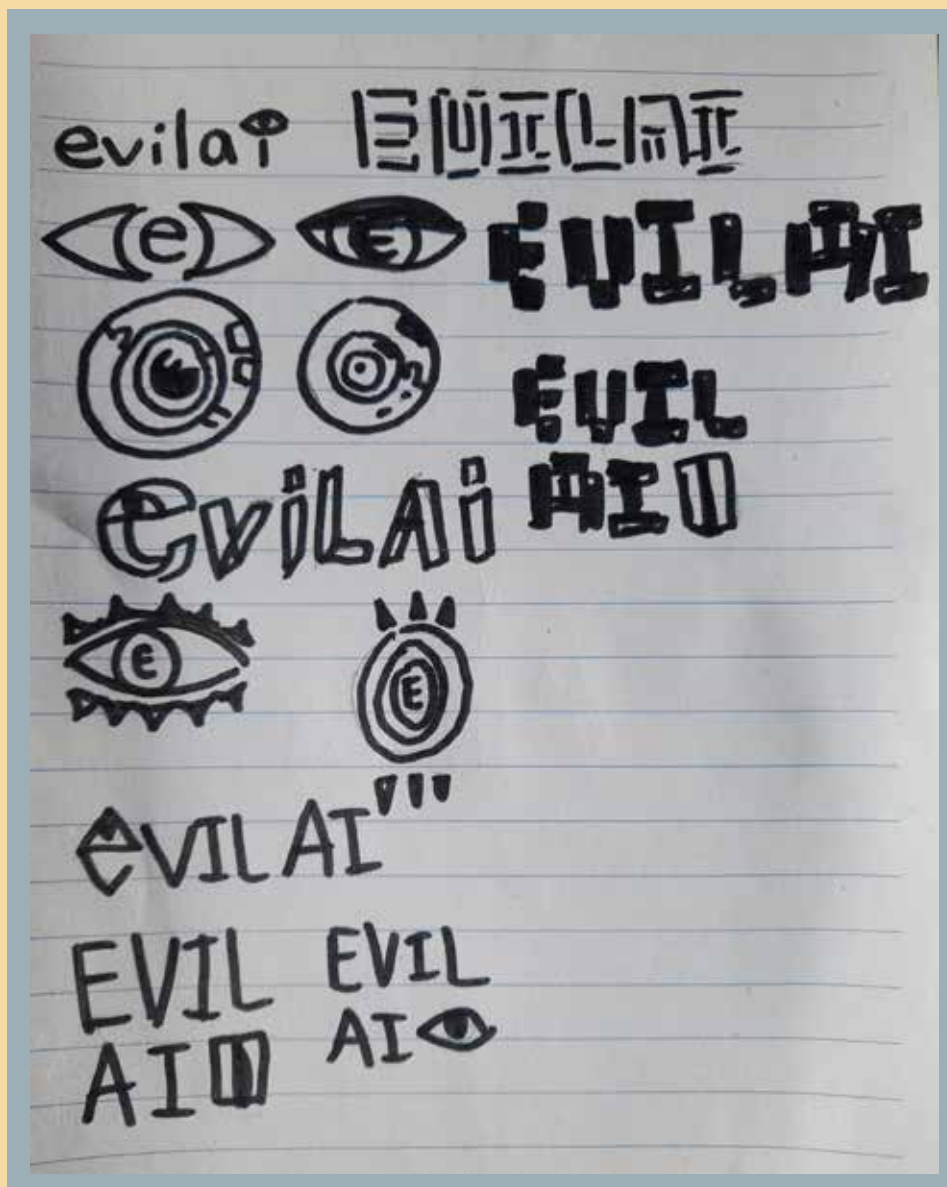 evilai EVILAI
e E EVILAI
E
EVIL
evilAi AI
E E
eVIL AI
EVIL EVIL
AI AI